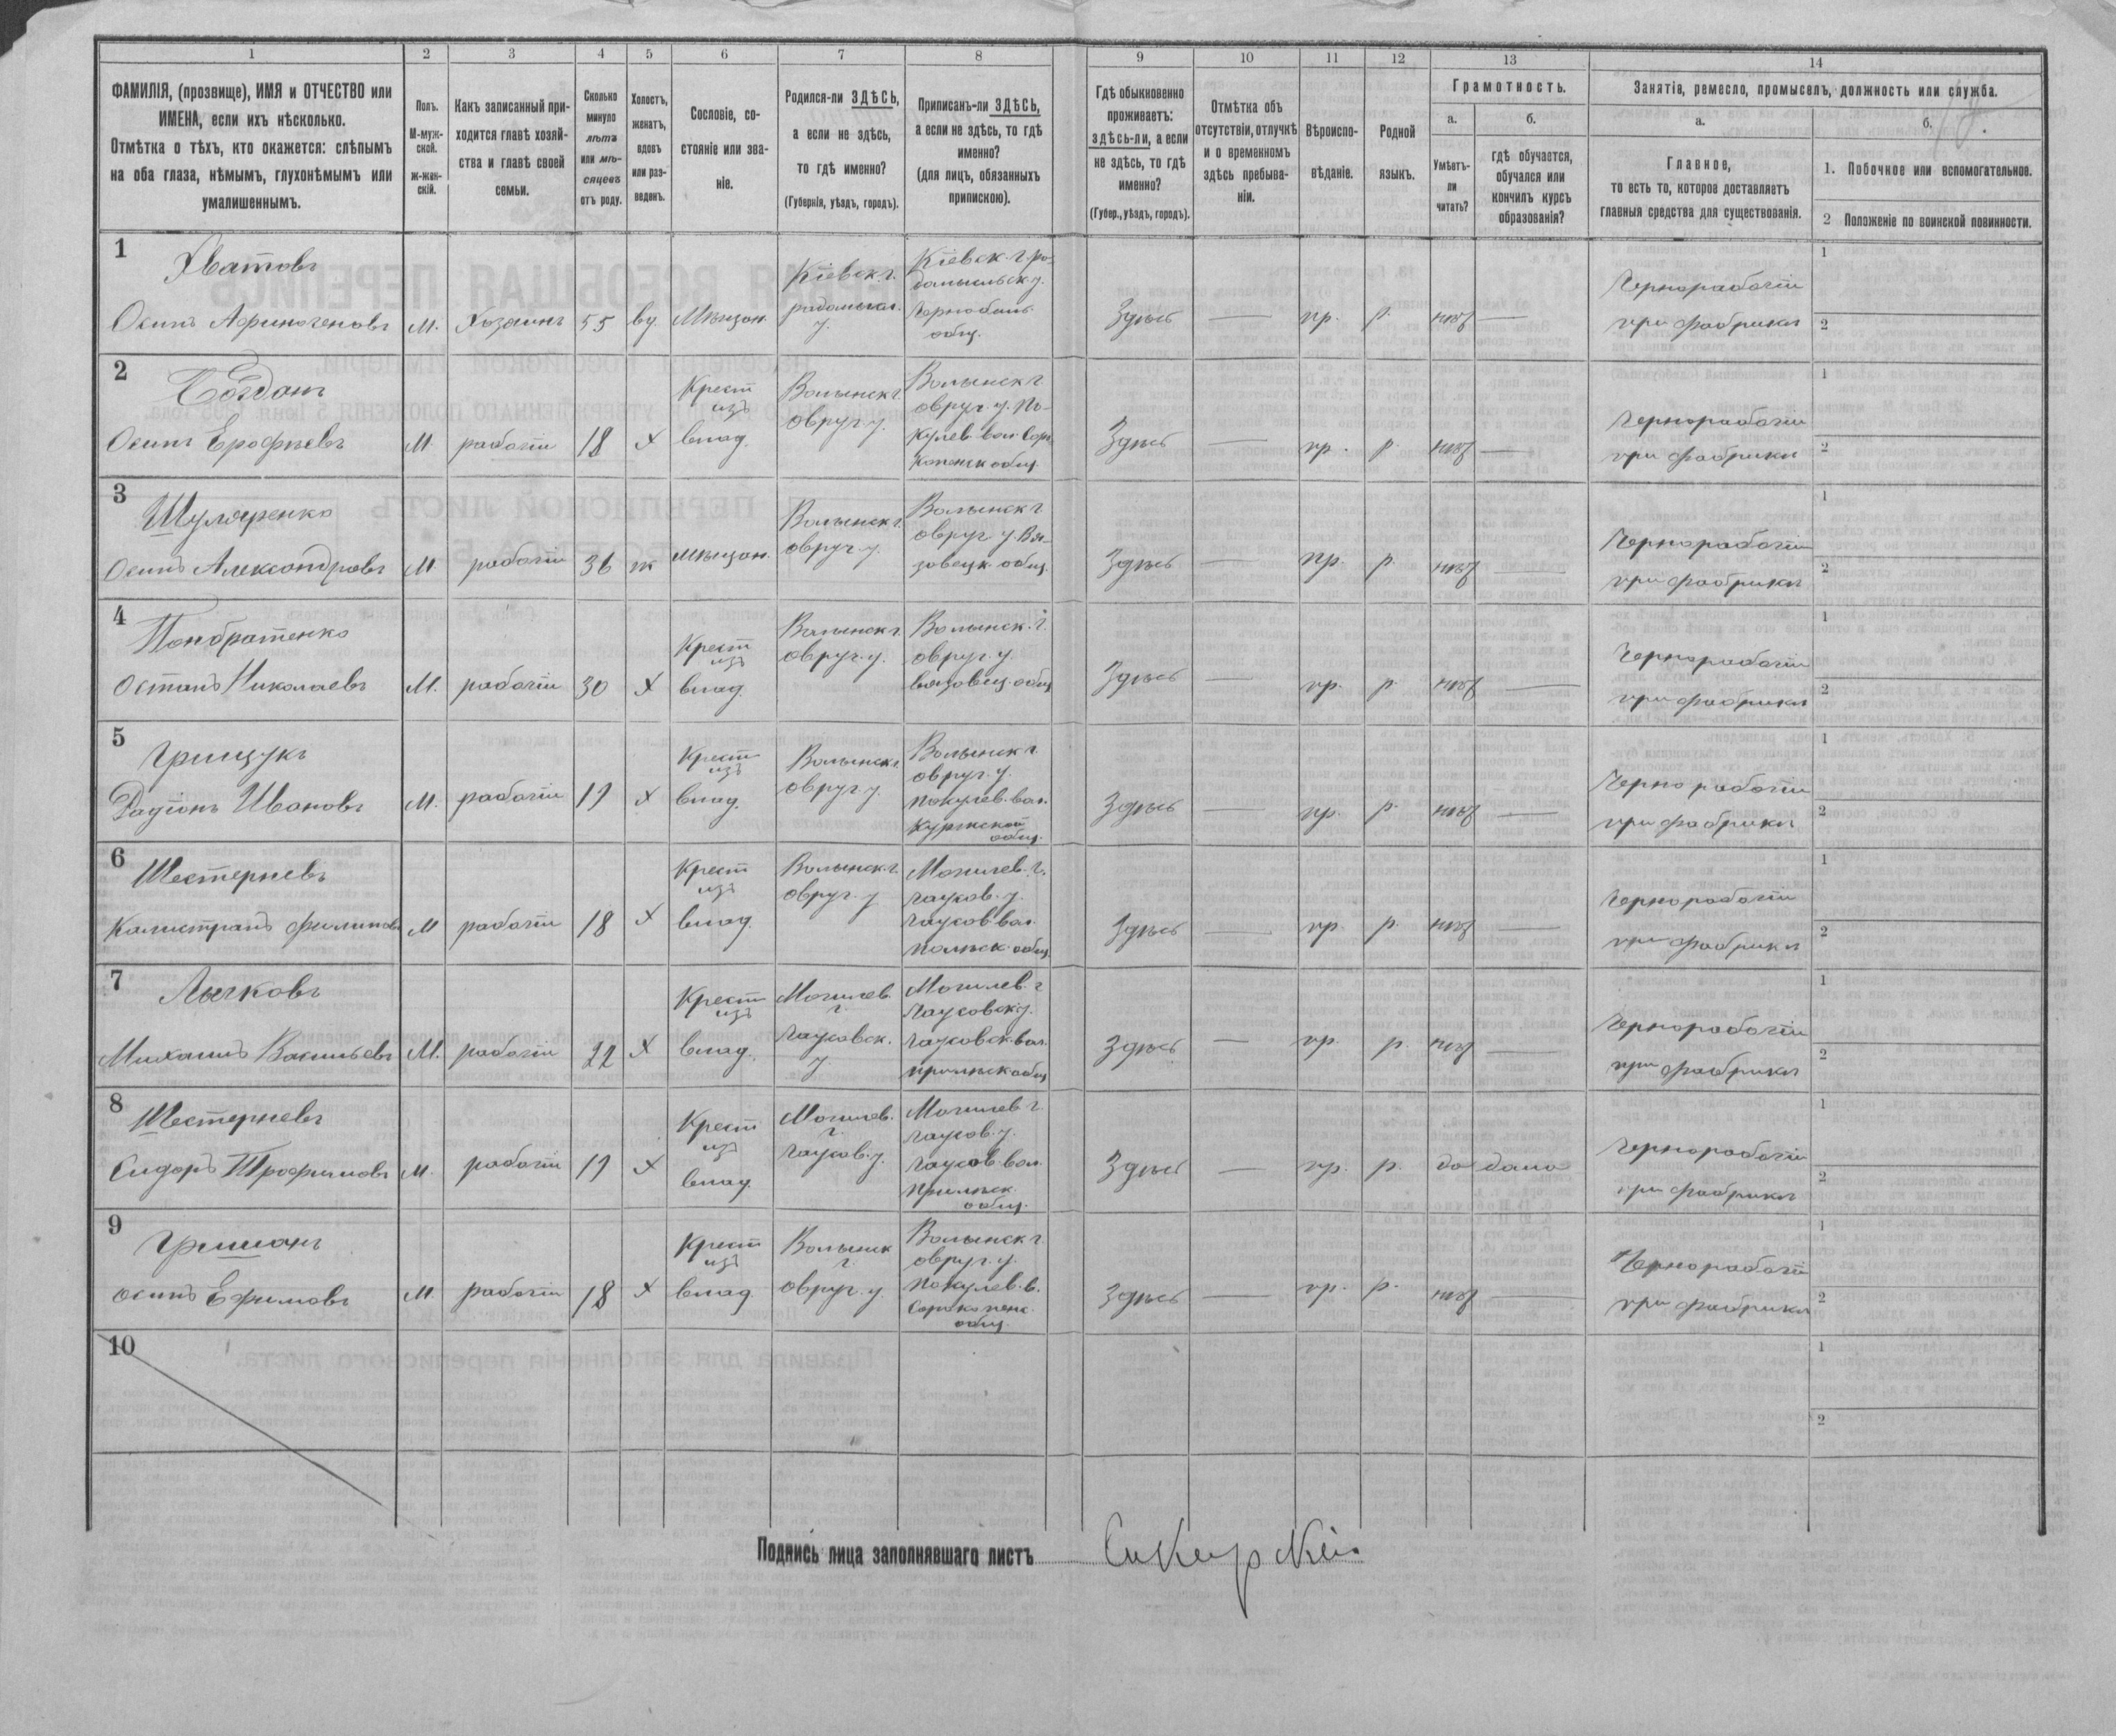 1 2 3 4 5 6 7 8 9 10 11 12 13 14
ФАМИЛІЯ, (прозвище), ИМЯ и ОТЧЕСТВО или
ИМЕНА, если ихъ нѣсколько.
Отмѣтка о тѣхъ, кто окажется: слѣпымъ
на оба глаза, нѣмымъ, глухонѣмымъ или
умалишеннымъ.
Полъ.
М-муж-
ской.
ж-жен-
скій.
Какъ записанный при-
ходится главѣ хозяй-
ства и главѣ своей
семьи.
Сколько
минуло
лѣтъ
или мѣ-
сяцевъ
отъ роду.
Холостъ,
женатъ,
вдовъ
или раз-
веденъ.
Сословіе, со-
стояніе или зва-
ніе.
Родился-ли ЗДѢСЬ,
а если не здѣсь,
то гдѣ именно?
(Губернія, уѣздъ, городъ).
Приписанъ-ли ЗДѢСЬ,
а если не здѣсь, то гдѣ
именно?
(для лицъ, обязанныхъ
припискою).
Гдѣ обыкновенно
проживаетъ:
здѣсь-ли, а если
не здѣсь, то гдѣ
именно?
(Губер., уѣздъ, городъ).
Отмѣтка объ
отсутствіи, отлучкѣ
и о временномъ
здѣсь пребыва-
ніи.
Вѣроиспо-
вѣданіе.
Родной
языкъ.
Грамотность.
а.
Умѣетъ-
ли
читать?
б.
гдѣ обучается,
обучался или
кончилъ курсъ
образованія?
Занятія, ремесло, промыселъ, должность или служба.
а.
Главное,
то есть то, которое доставляетъ
главныя средства для существованія.
б.
1. Побочное или вспомогательное.
2 Положеніе по воинской повинности.
1
Хватовъ
Осипъ Афиногеновъ
М.
Хозяинъ
55
вд.
Мѣщан.
Кіевск. г.
радомысл.
у.
Кіевск. г. ра-
домысльск у.
Чернобыль
общ.
Здѣсь
—
пр.
р.
нѣт
—
Чернорабочій
при фабрики
1
2
2
Богданъ
Осипъ Ерофѣевъ
М.
рабочій
18
х
Крест
изъ
влад.
Волынск г.
овруч. у.
Волынск г
овруч. у. По-
Здѣсь
—
пр.
р
нѣт
—
Чернорабочій
при фабрики
1
2
3
Шуляренко
Осипъ Александровъ
М
рабочій
36
ж
мѣщан.
Волынск г.
овруч. у.
Волынск г
овруч у.
общ.
Здѣсь
—
пр.
р.
нѣт
—
Чернорабочій
при фабрики
1
2
4
Понбратенко
Остапъ Николаевъ
М.
рабочій
30
х
Крест
изъ
влад.
Волынск г.
овруч. у.
Волынск. г.
овруч. у.
общ
Здѣсь
—
пр.
р.
нѣт
—
Чернорабочій
при фабрики
1
2
5
Грищукъ
Радіонъ Ивановъ
М.
рабочій
19
х
Крест
изъ
влад.
Волынск г.
овруч у.
Волынск г.
овруч. у.
покулев. вол.
общ.
Здѣсь
—
пр.
р.
нѣт
—
Чернорабочій
при фабрики
1
2
6
Шестерневъ
Калистратъ Филиповъ
М
рабочій
18
х
Крест
изъ
влад.
Волынск. г.
овруч. у
Могилев. г.
чаусов. у.
чаусов вол.
общ.
Здѣсь
—
пр.
р.
нѣт
—
Чернорабочій
при фабрики
1
2
7
Лычковъ
Михаилъ Васильевъ
М.
рабочій
22
х
Крест
изъ
влад.
Могилев.
г.
чаусовск.
у.
Могилев. г
чаусовск у.
чаусовск. вол.
общ
Здѣсь
—
пр.
р.
нѣт
—
Чернорабочій
при фабрики
1
2
8
Шестерневъ
Сидоръ Трофимовъ
М.
рабочій
19
х
Крест
изъ
влад.
Могилев.
г.
чаусов. у.
Могилев г.
чаусов. у.
чаусов. вол.
общ.
Здѣсь
—
пр.
р.
да
дома
Чернорабочій
при фабрики
1
2
9
Гришанъ
осипъ Ефимовъ
М
рабочій
18
х
Крест
изъ
влад
Волынск
г.
овруч. у.
Волынск г.
овруч. у.
покулев. в.
общ.
Здѣсь
—
пр.
р.
нѣт
—
Чернорабочій
при фабрики
1
2
10
1
2
Подпись лица заполнявшаго листъ